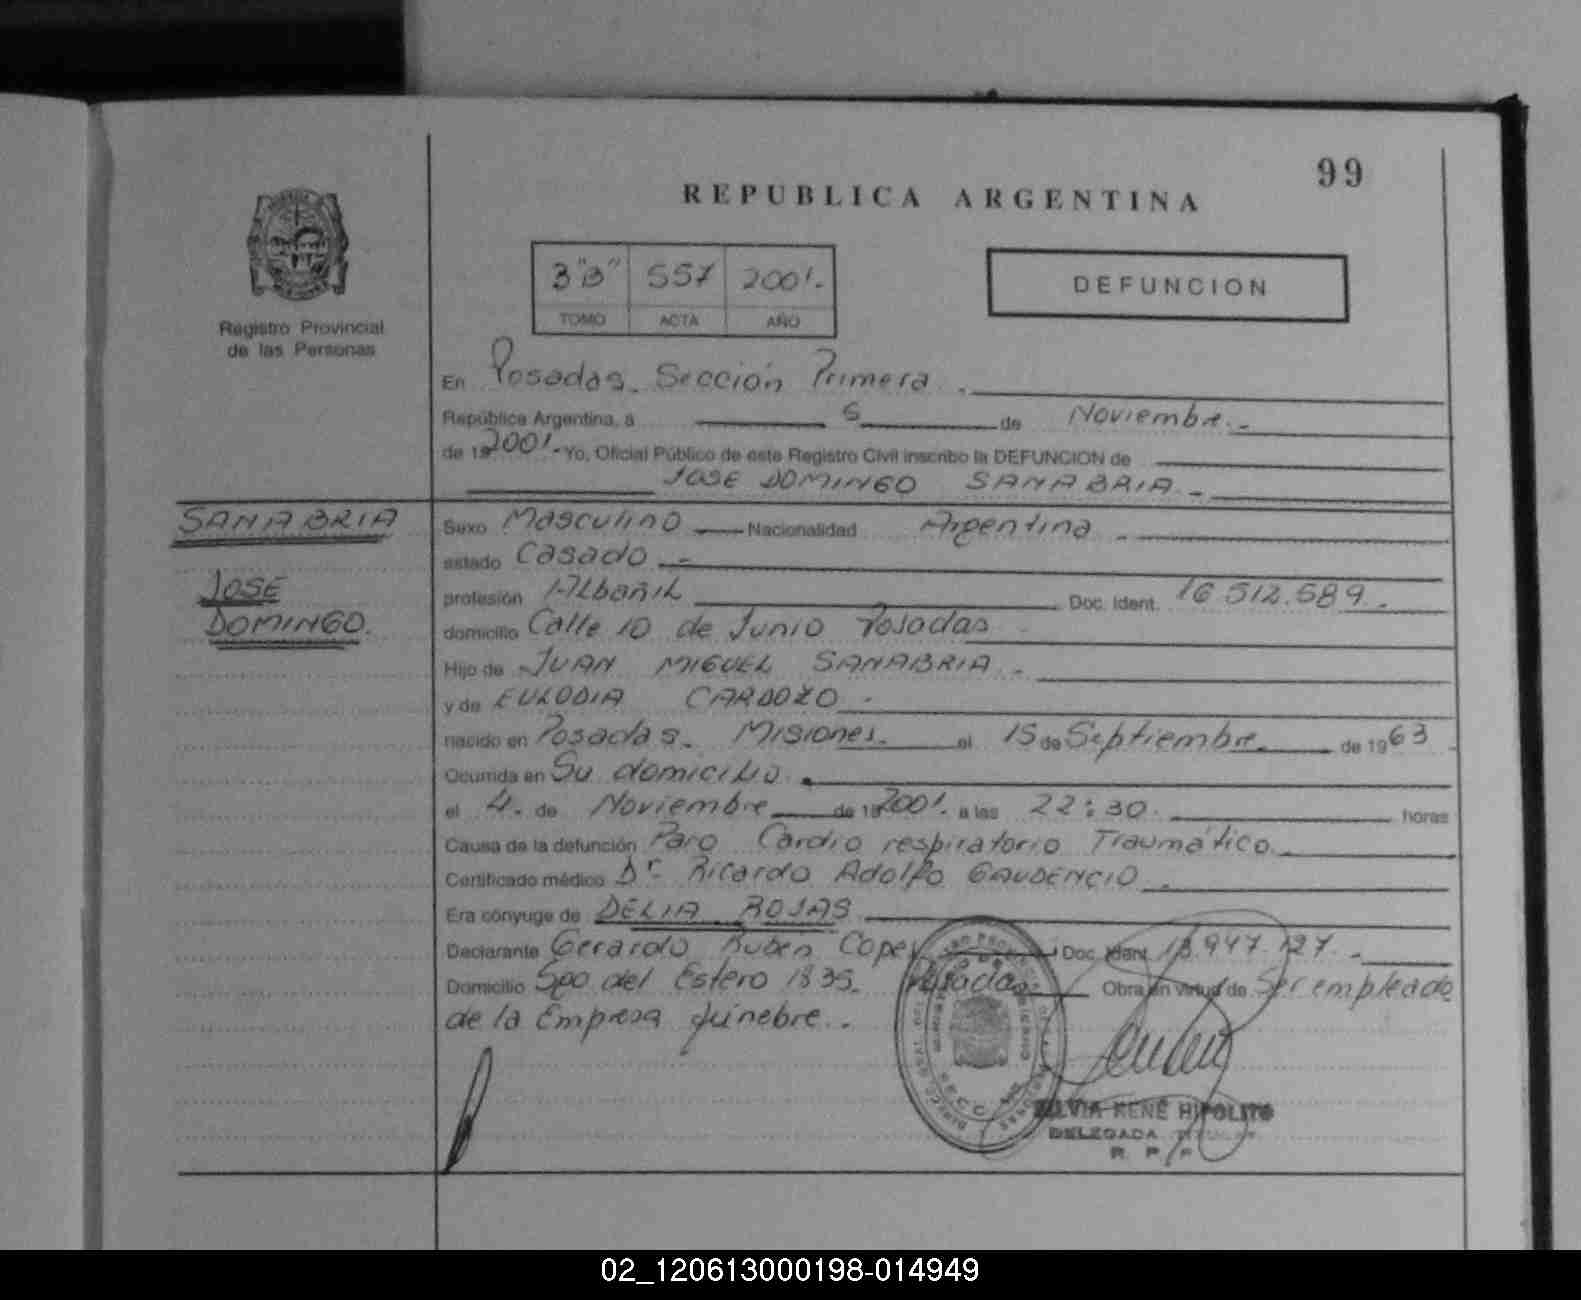 99
REPUBLICA ARGENTINA
Registro Provincial
de las Personas
3"B" 557 2001.-
TOMO ACTA AÑO
DEFUNCION
En Posadas. Sección Primera.
República Argentina, a 5 de Noviembre.-
de 19 2001.- Yo, Oficial Público de este Registro Civil inscribo la DEFUNCION de
JOSE DOMINGO SANABRIA.-
SANABRIA
JOSE
DOMINGO.
Sexo Masculino Nacionalidad Argentina.
estado Casado.-
profesión Albañil Doc. Ident. 16.512.589.
domicilio Calle 10 de Junio Posadas
Hijo de JUAN MIGUEL SANABRIA.-
y de EULODIA CARDOZO.
nacido en Posadas. Misiones. el 15 de Septiembre. de 19 63
Ocurrida en Su domicilio.
el 4. de Noviembre de 19 2001. a las 22:30. horas
Causa de la defunción Paro Cardio respiratorio Traumático.
Certificado médico Dr Ricardo Adolfo GAUDENCIO.
Era cónyuge de DELIA ROJAS
Declarante Gerardo Ruben Doc. Ident. 13.947.127.-
Domicilio Sgo. del Estero 1835. Posadas Obra en virtud de Ser empleado
de la Empresa fúnebre.-
SILVIA RENÉ HIPOLITO
DELEGADA TITULAR
R. P. P.
02_120613000198-014949